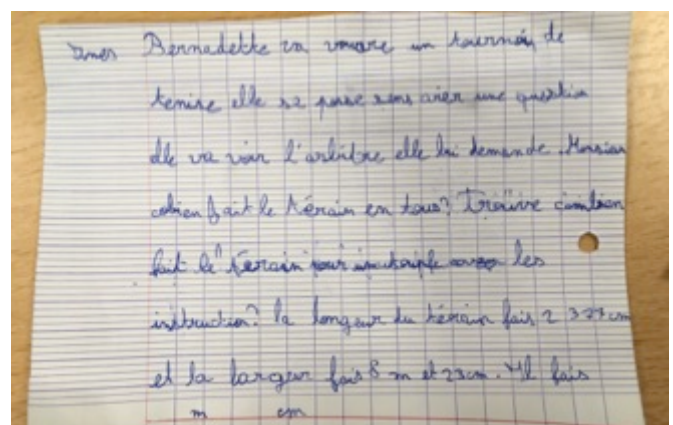 Bernadette va un tournoi de
tenise elle se pose sens une question
elle va voir l'arbitre elle lui demande. Monsieur
conbien fait le térain en tous? Trouve combien
fait le terain pour les
instruction? la longeur du térain fais 2 377 cm
et la largeur fais 8 m et 23 cm. Il fais
m cm